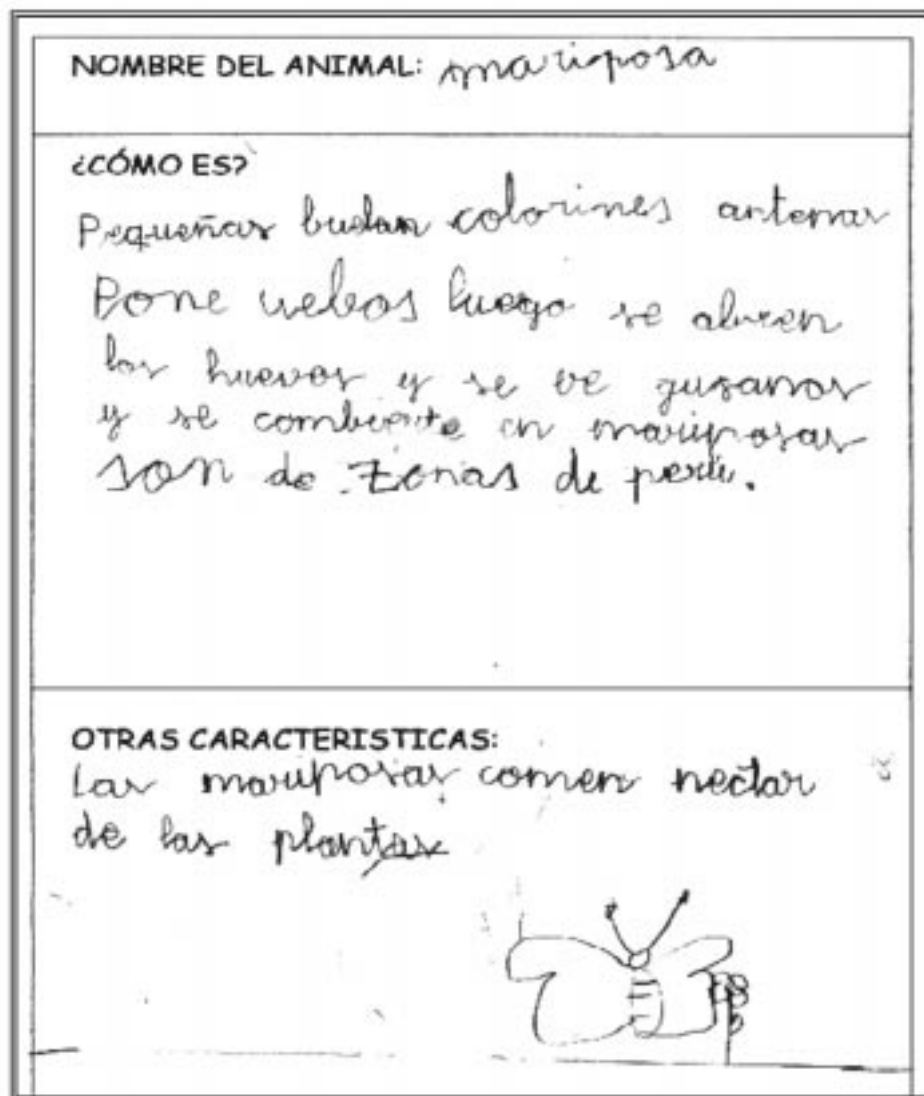 NOMBRE DEL ANIMAL: mariposa
¿CÓMO ES?
Pequeñas budan colorines antenas
Pone uebos luego se abren
los huevos y se ve gusanos
y se combierte en mariposas
son de zonas de perú.
OTRAS CARACTERISTICAS:
Las mariposas comen nectar
de las plantas